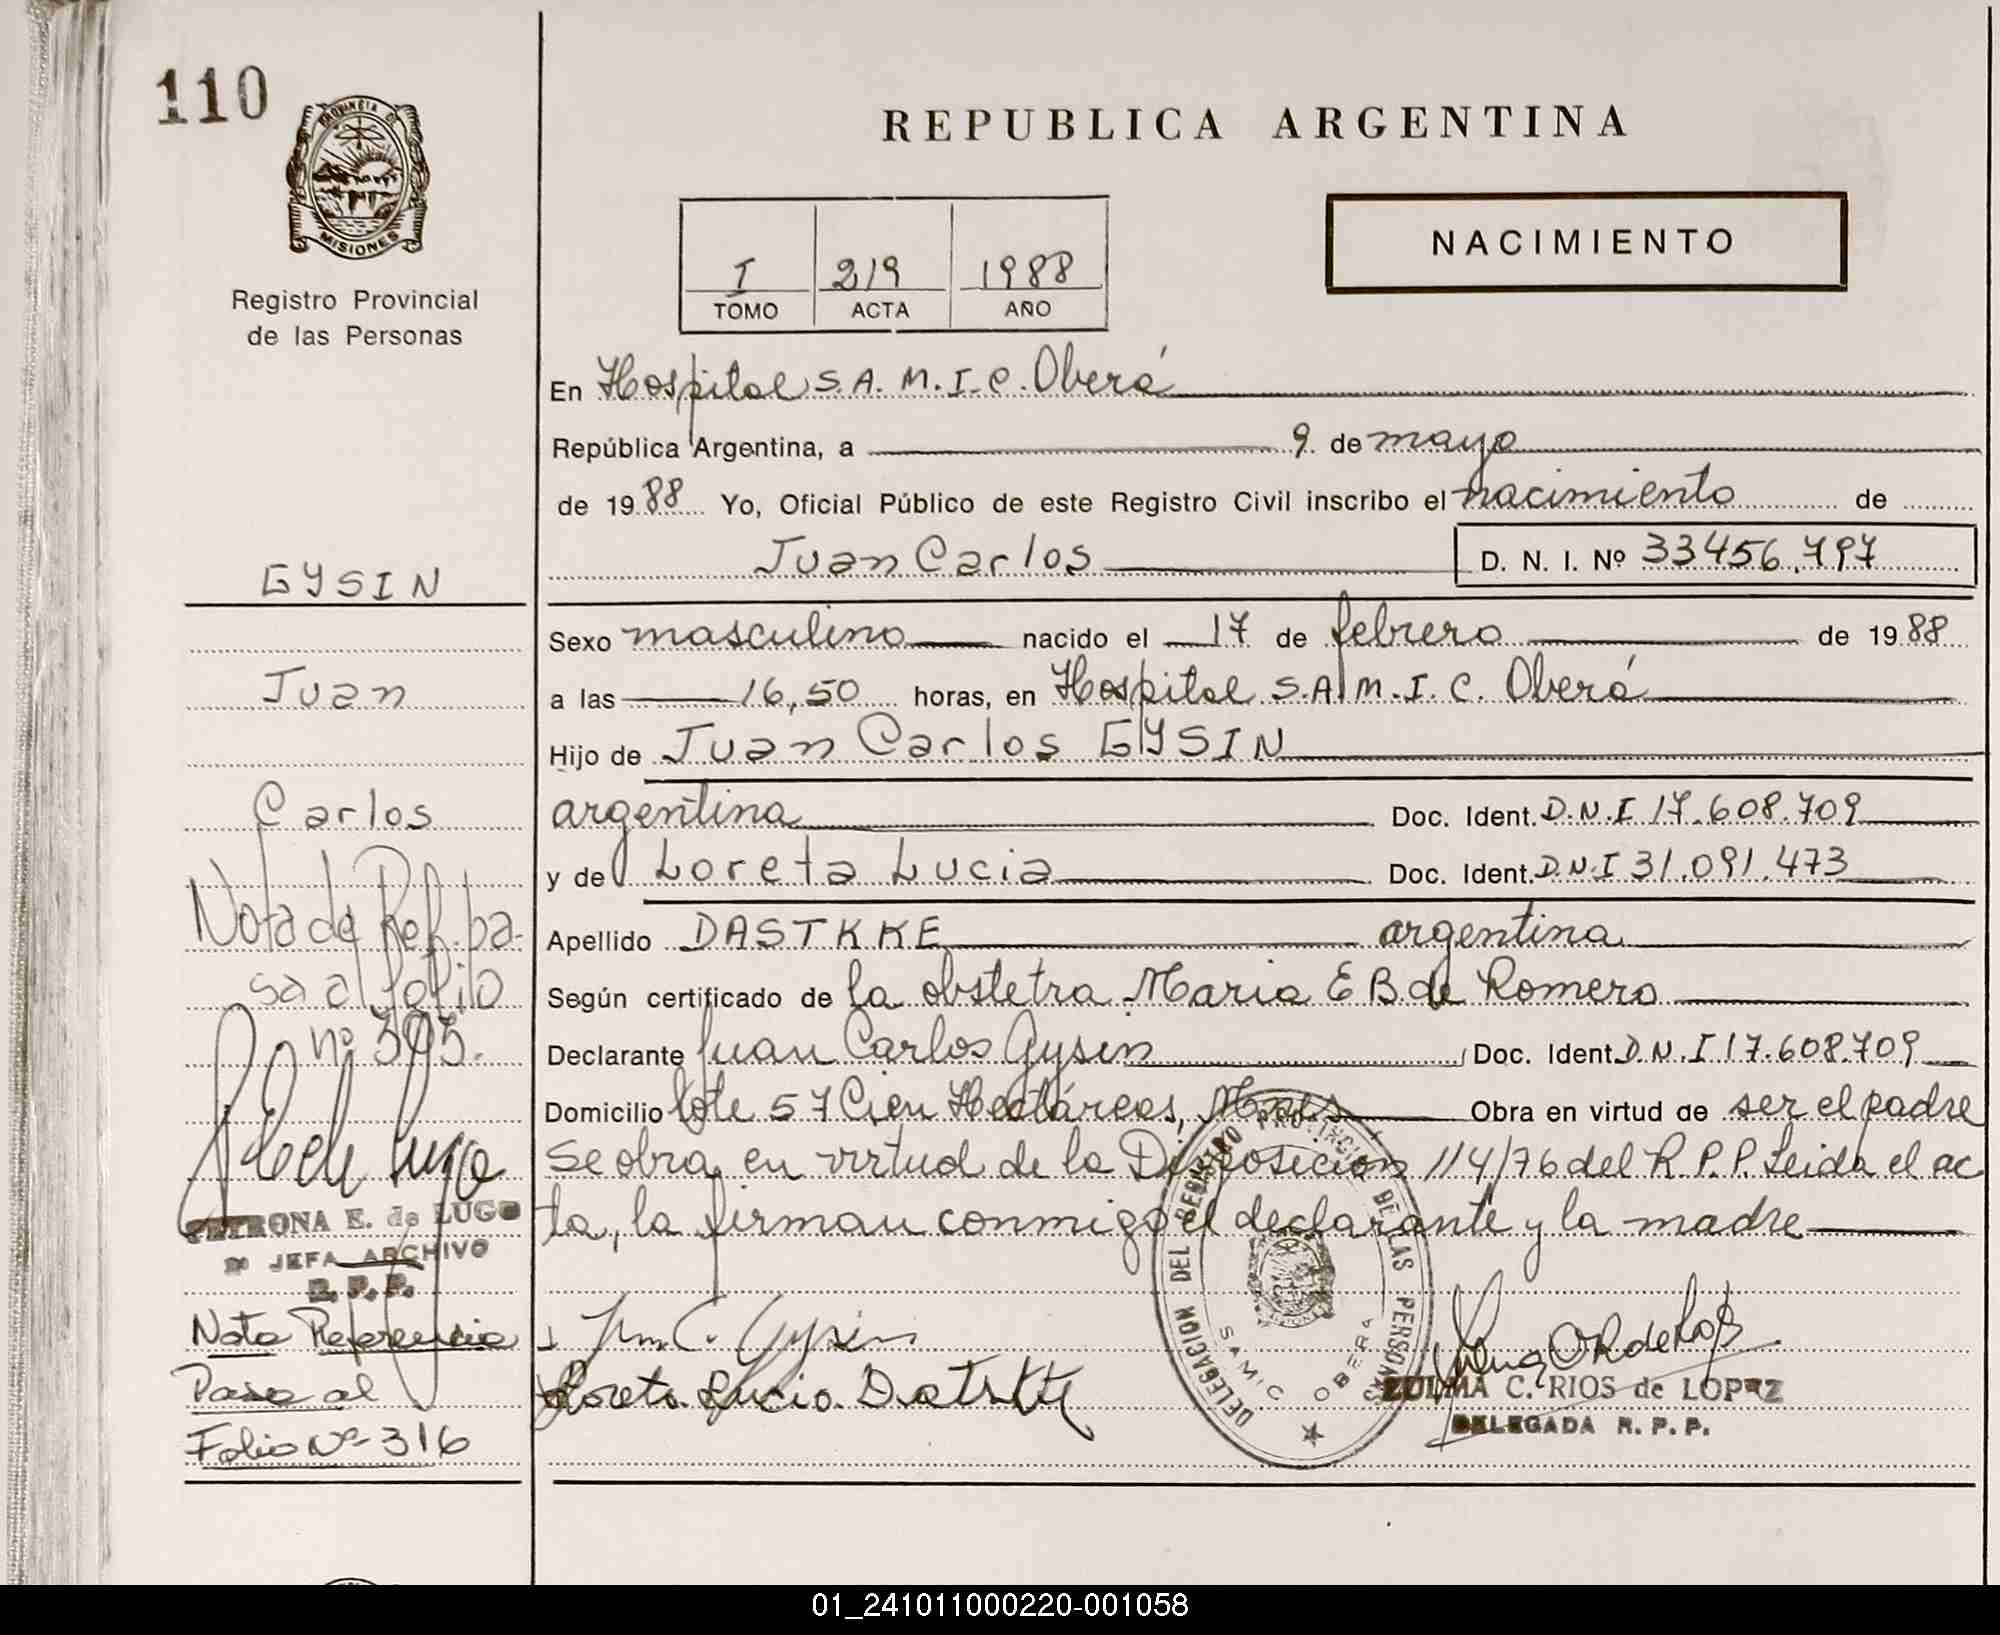 110
PROVINCIA DE
MISIONES
Registro Provincial
de las Personas
REPUBLICA ARGENTINA
NACIMIENTO
I 219 1988
TOMO ACTA AÑO
En Hospital S.A.M.I.C. Oberá
República Argentina, a 9 de mayo
de 1988 Yo, Oficial Público de este Registro Civil inscribo el nacimiento de
Juan Carlos D. N. I. Nº 33456.797
Sexo masculino nacido el 17 de febrero de 1988
a las 16,50 horas, en Hospital S.A.M.I.C. Oberá
Hijo de Juan Carlos GYSIN
argentina Doc. Ident. D.N.I 17.608.709
y de Loreta Lucia Doc. Ident. D.N.I 31.091.473
Apellido DASTKKE argentina
Según certificado de la obstetra Maria E B de Romero
Declarante Juan Carlos Gysin Doc. Ident D.N.I 17.608.709
Domicilio lote 57 Cien Hectáreas, Mnes Obra en virtud de ser el padre
Se obra en virtud de la Disposicion 114/76 del R.P.P. Leida el ac
ta, la firman conmigo el declarante y la madre
Juan C. Gysin
Loreta Lucia
DELEGACION DEL REGISTRO PROVINCIAL DE LAS PERSONAS
SAMIC OBERA
ZULMA C. RIOS de LOPEZ
DELEGADA R. P. P.
GYSIN
Juan
Carlos
Nota de Ref. pa-
sa al folio
nº 395.
PETRONA E. de LUGO
JEFA ARCHIVO
R. P. P.
Nota Referencia
Pasa al
Folio Nº 316
01_241011000220-001058